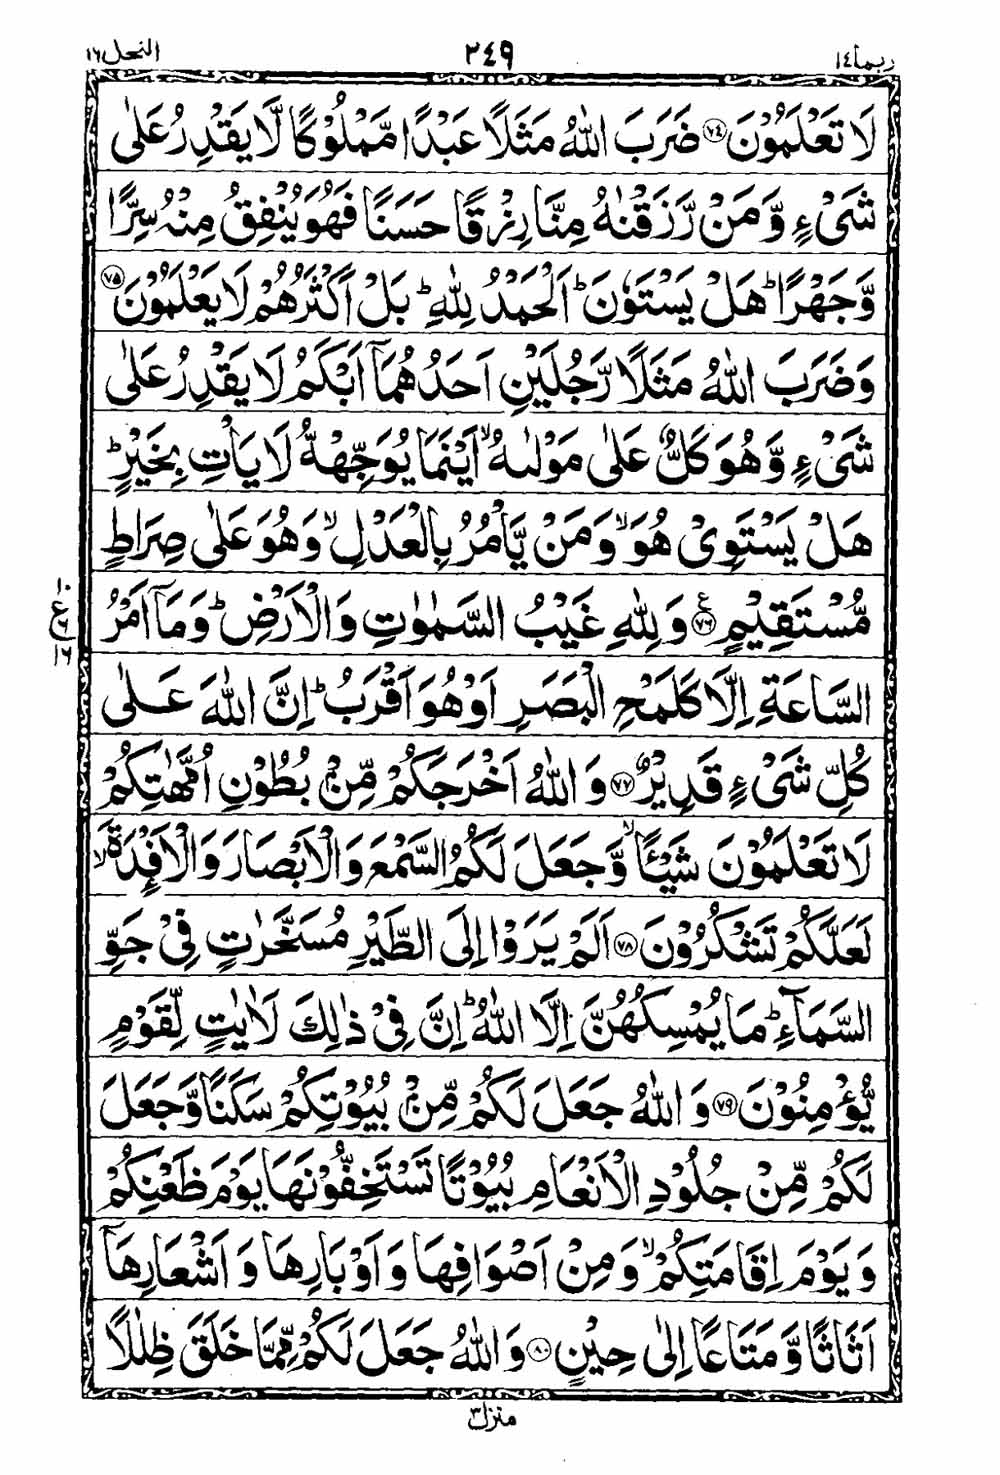 ربما ١٤ ٢٤٩ النحل ١٦
لَا تَعْلَمُوْنَ ﴿٧٤﴾ ضَرَبَ اللّٰهُ مَثَلًا عَبْدًا مَّمْلُوْكًا لَّا يَقْدِرُ عَلٰى
شَيْءٍ وَّمَنْ رَّزَقْنٰهُ مِنَّا رِزْقًا حَسَنًا فَهُوَ يُنْفِقُ مِنْهُ سِرًّا
وَّجَهْرًا ؕ هَلْ يَسْتَوٗنَ ؕ اَلْحَمْدُ لِلّٰهِ ؕ بَلْ اَكْثَرُهُمْ لَا يَعْلَمُوْنَ ﴿٧٥﴾
وَضَرَبَ اللّٰهُ مَثَلًا رَّجُلَيْنِ اَحَدُهُمَاۤ اَبْكَمُ لَا يَقْدِرُ عَلٰى
شَيْءٍ وَّهُوَ كَلٌّ عَلٰى مَوْلٰىهُ ۙ اَيْنَمَا يُوَجِّهْهُّ لَا يَاْتِ بِخَيْرٍ ؕ
هَلْ يَسْتَوِيْ هُوَ ۙ وَمَنْ يَّاْمُرُ بِالْعَدْلِ ۙ وَهُوَ عَلٰى صِرَاطٍ
مُّسْتَقِيْمٍ ﴿٧٦﴾ ع وَلِلّٰهِ غَيْبُ السَّمٰوٰتِ وَالْاَرْضِ ؕ وَمَاۤ اَمْرُ
١٠ ع ٦ ١٦
السَّاعَةِ اِلَّا كَلَمْحِ الْبَصَرِ اَوْ هُوَ اَقْرَبُ ؕ اِنَّ اللّٰهَ عَلٰى
كُلِّ شَيْءٍ قَدِيْرٌ ﴿٧٧﴾ وَاللّٰهُ اَخْرَجَكُمْ مِّنْۢ بُطُوْنِ اُمَّهٰتِكُمْ
لَا تَعْلَمُوْنَ شَيْـًٔا ۙ وَّجَعَلَ لَكُمُ السَّمْعَ وَالْاَبْصَارَ وَالْاَفْـِٕدَةَ ۙ
لَعَلَّكُمْ تَشْكُرُوْنَ ﴿٧٨﴾ اَلَمْ يَرَوْا اِلَى الطَّيْرِ مُسَخَّرٰتٍ فِيْ جَوِّ
السَّمَآءِ ؕ مَا يُمْسِكُهُنَّ اِلَّا اللّٰهُ ؕ اِنَّ فِيْ ذٰلِكَ لَاٰيٰتٍ لِّقَوْمٍ
يُّؤْمِنُوْنَ ﴿٧٩﴾ وَاللّٰهُ جَعَلَ لَكُمْ مِّنْۢ بُيُوْتِكُمْ سَكَنًا وَّجَعَلَ
لَكُمْ مِّنْ جُلُوْدِ الْاَنْعَامِ بُيُوْتًا تَسْتَخِفُّوْنَهَا يَوْمَ ظَعْنِكُمْ
وَيَوْمَ اِقَامَتِكُمْ ۙ وَمِنْ اَصْوَافِهَا وَاَوْبَارِهَا وَاَشْعَارِهَاۤ
اَثَاثًا وَّمَتَاعًا اِلٰى حِيْنٍ ﴿٨٠﴾ وَاللّٰهُ جَعَلَ لَكُمْ مِّمَّا خَلَقَ ظِلٰلًا
منزل ٣